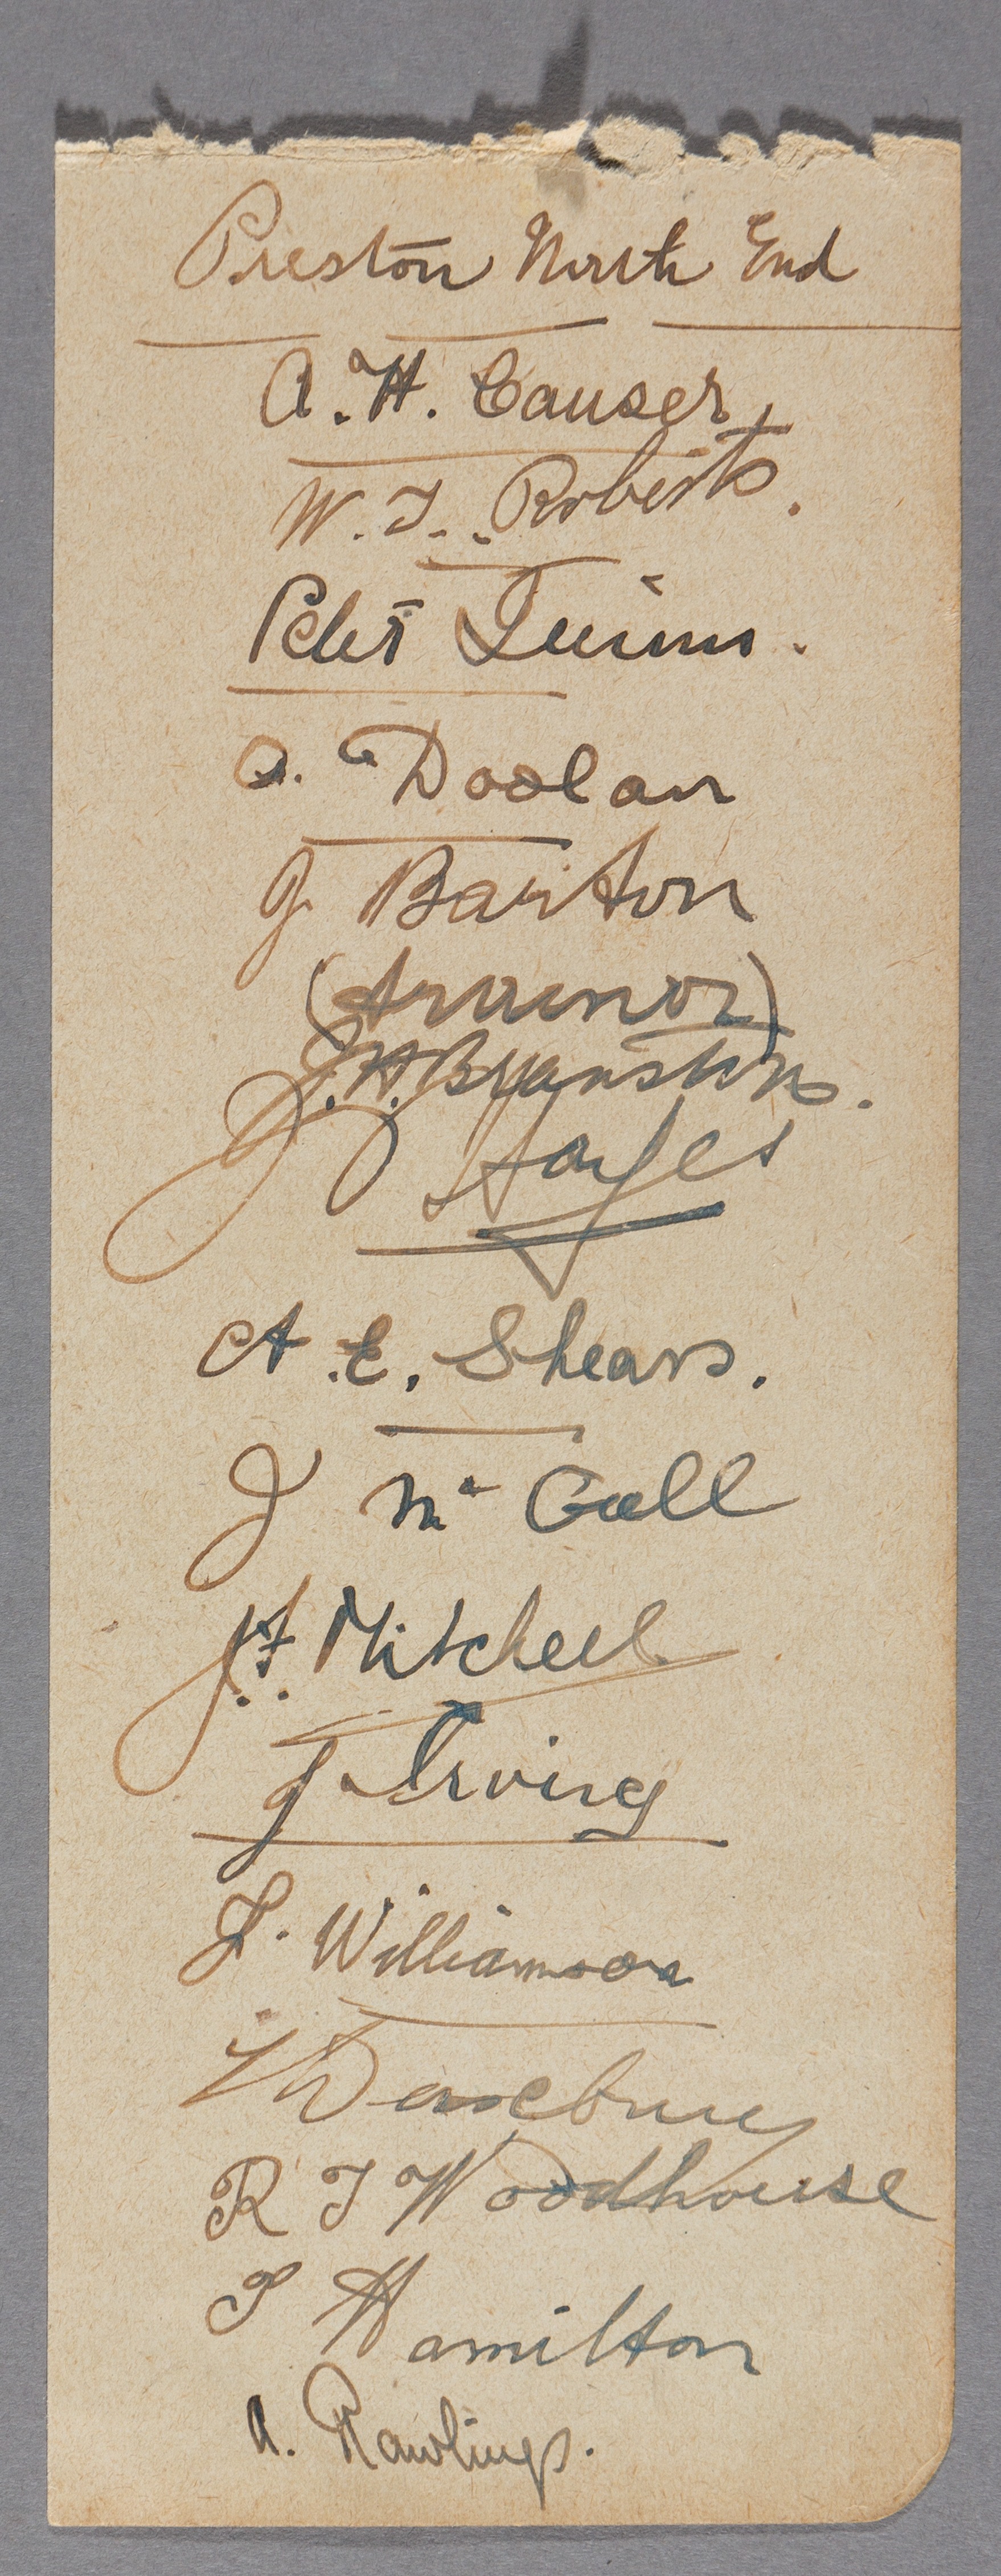 Preston North End
A. H. Causer
W. T. Roberts.
Peter Quinn.
A. Doolan
J Barton
(Trainor)
J. H. Branston.
J J Hayes
A. E. Shears.
J Mc Call
J. F. Mitchell
J. Irving
J. Williamson
Duxbury
R T Woodhouse
T Hamilton
A. Rawlings.